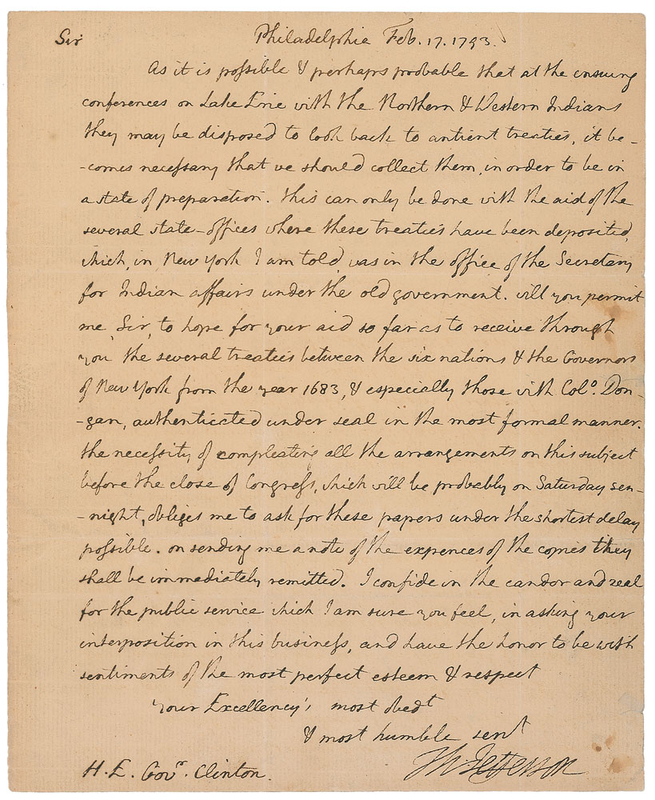 Sir Philadelphia Feb. 17. 1793.
As it is possible & perhaps probable that at the ensuing
conferences on Lake Erie with the Northern & Western Indians
they may be disposed to look back to antient treaties, it be-
-comes necessary that we should collect them, in order to be in
a state of preparation. this can only be done with the aid of the
several state-offices where these treaties have been deposited,
which, in New York I am told, was in the office of the Secretary
for Indian affairs under the old government. will you permit
me, Sir, to hope for your aid so far as to receive through
you the several treaties between the six nations & the Governors
of New York from the year 1683, & especially those with Colo. Don-
-gan, authenticated under seal in the most formal manner.
the necessity of compleating all the arrangements on this subject
before the close of Congress, which will be probably on Saturday sen-
-night, obliges me to ask for these papers under the shortest delay
possible. on sending me a note of the expences of the copies they
shall be immediately remitted. I confide in the candor and zeal
for the public service which I am sure you feel, in asking your
interposition in this business, and have the honor to be with
sentiments of the most perfect esteem & respect
Your Excellency's most obedt
& most humble servt
Th: Jefferson
H. E. Govr. Clinton.